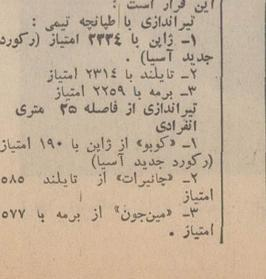 این قرار است :
تیراندازی با طپانچه تیمی :
۱ـ ژاپن با ۲۳۳۴ امتیاز (رکورد
جدید آسیا) .
۲ـ تایلند با ۲۳۱۴ امتیاز
۳ـ برمه با ۲۲۵۹ امتیاز
تیراندازی از فاصله ۲۵ متری
انفرادی
۱ـ «کوبو» از ژاپن با ۱۹۰ امتیاز
(رکورد جدید آسیا)
۲ـ «چانیرات» از تایلند ۵۸۵
امتیاز
۳ـ «مین‌جون» از برمه با ۵۷۷
امتیاز .